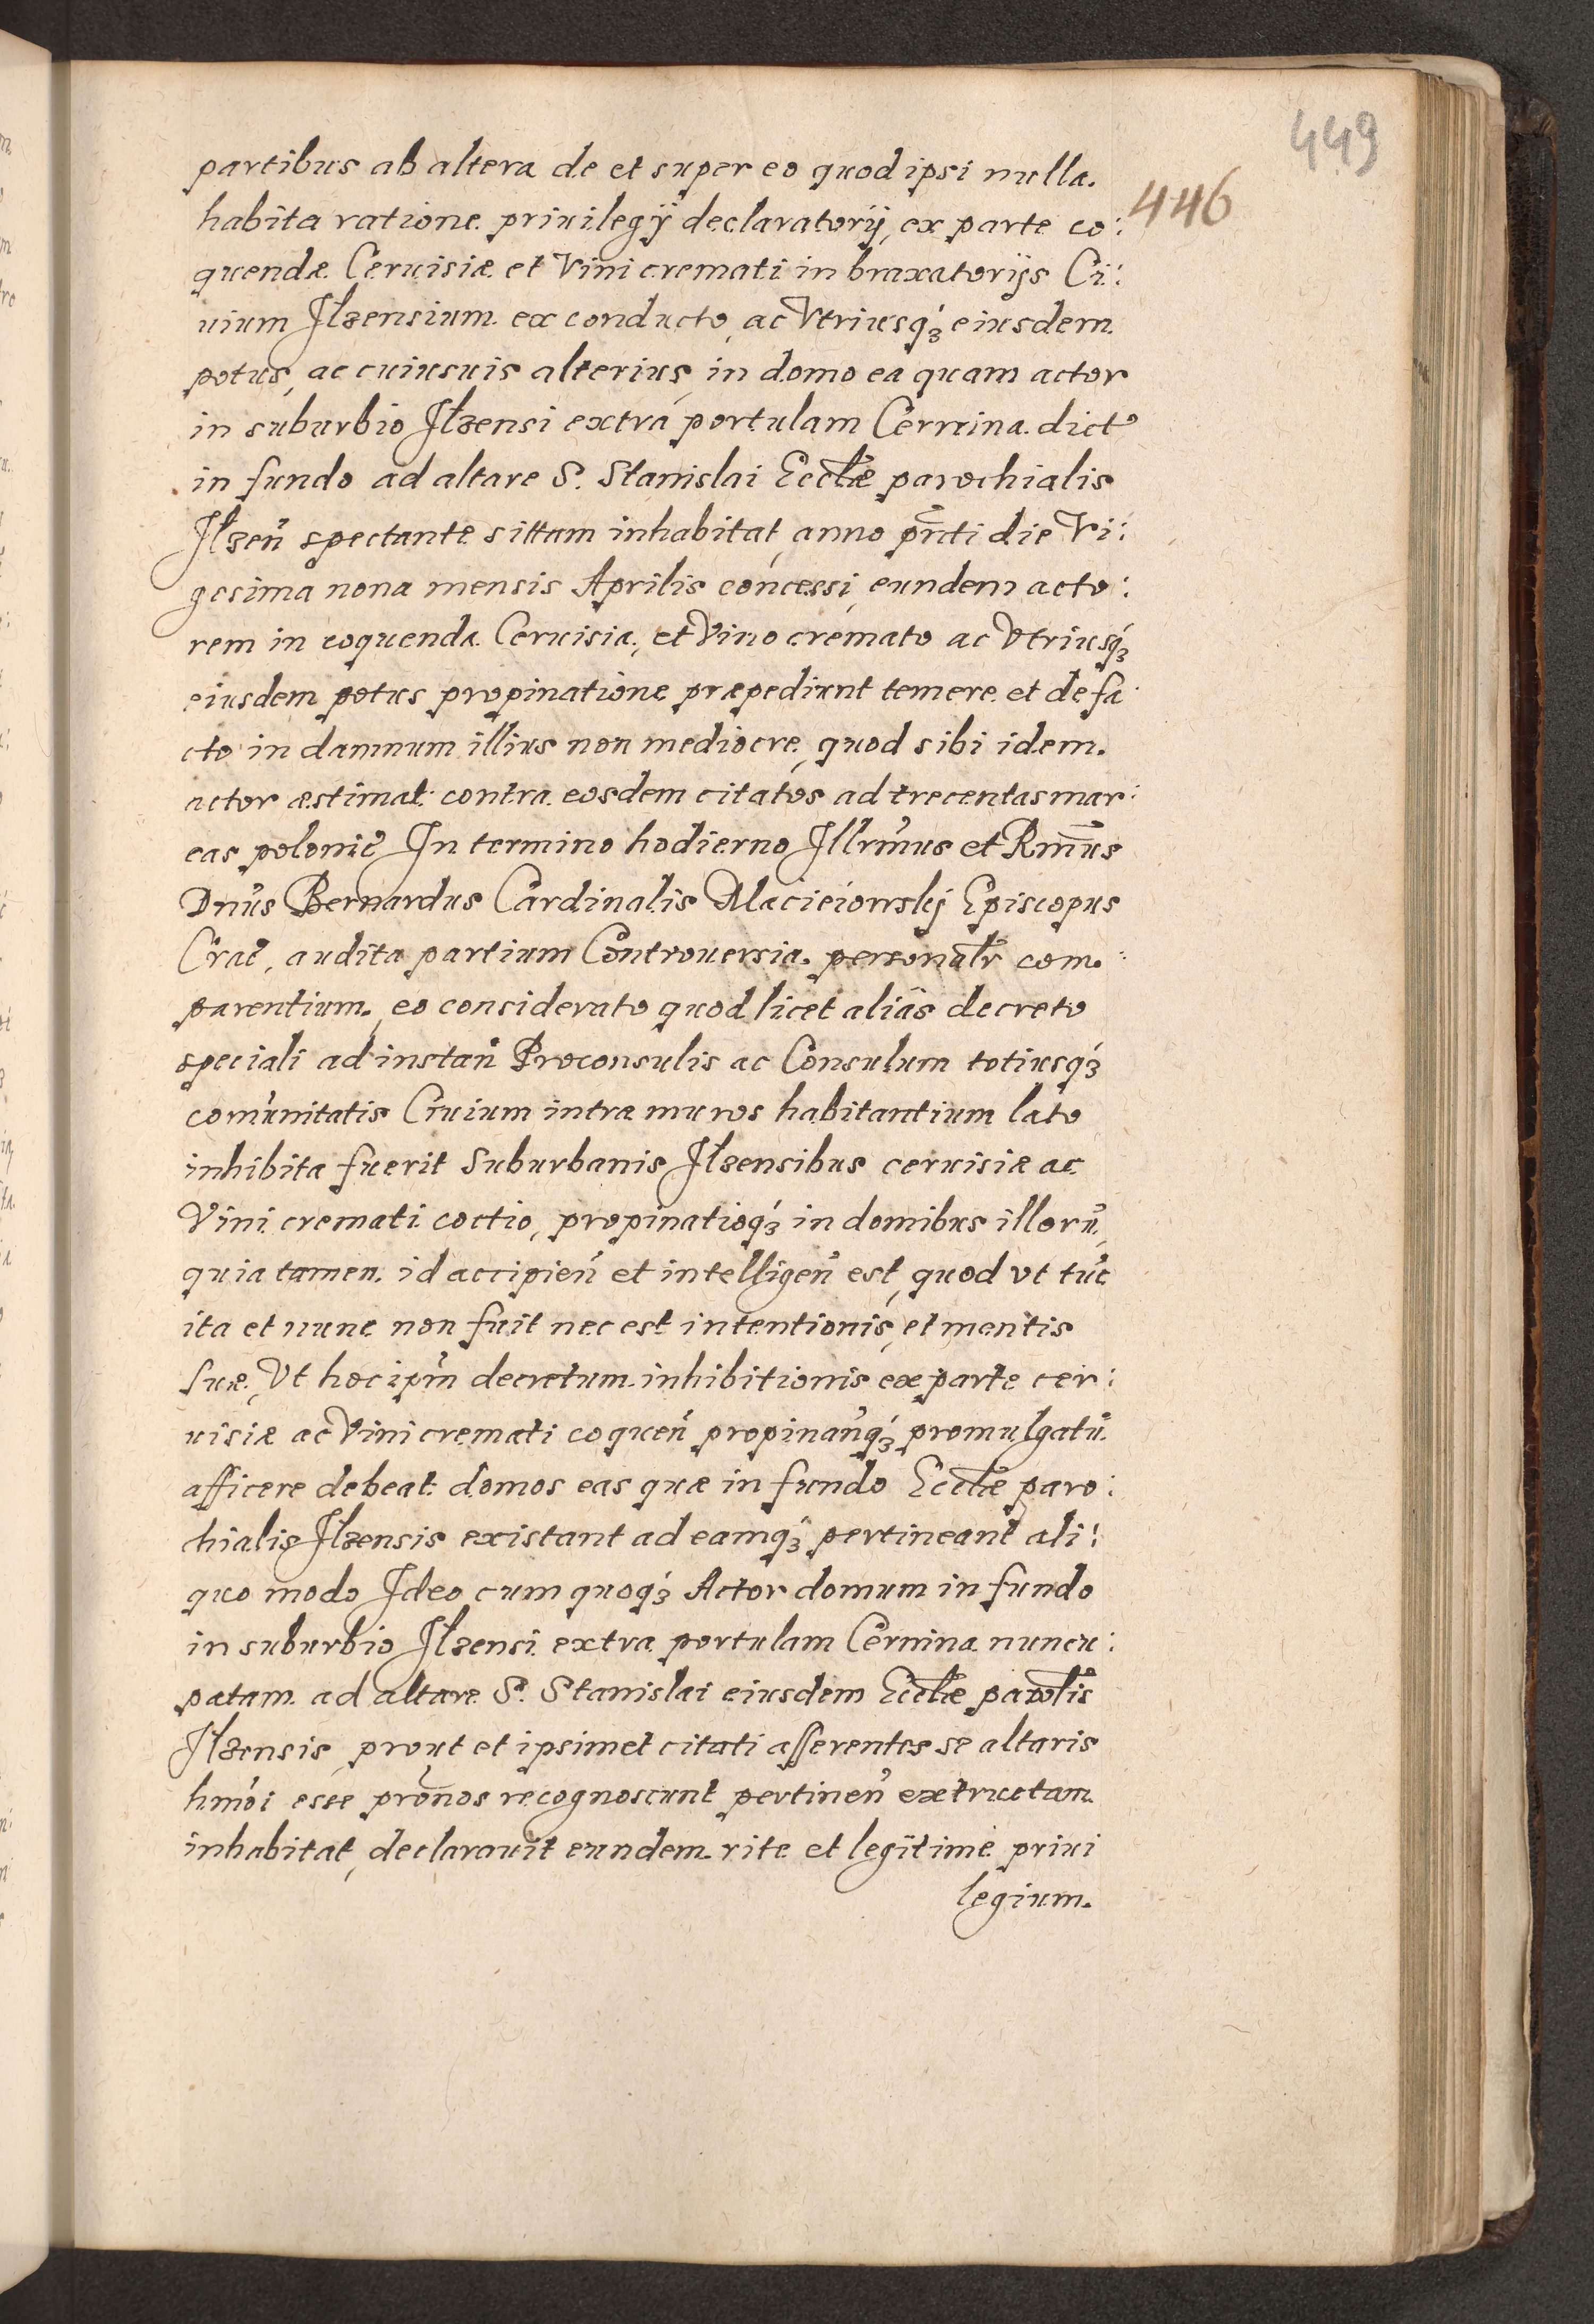 449
446
partibus ab altera de et super eo quod ipsi nulla
habita ratione priuilegij declaratorij, ex parte co:
quendæ Ceruisiæ et Vini cremati in braxatorijs Ci:
uium Ilzensium ex conducto, ac Vtriusq́ꝫ eiusdem
potus, ac cuiusuis alterius, in domo ea quam actor
in suburbio Ilzensi extrá portulam Cerwina dict
in fundo ad altare S. Stanislai Ecclæ parochialis
Ilzeñ spectante sittam inhabitat, anno prñti die Vi:
gesima nona mensis Aprilis concessi, eundem acto:
rem in coquenda Ceruisia, et Vino cremato ac Vtriusq́ꝫ
eiusdem potus propinatione præpediunt temere et de fa
cto in damnum illius non mediocre, quod sibi idem
actor æstimat contra eosdem citatos ad trecentas mar:
cas polonic̃ In termino hodierno Illrm̃us et Rm̃us
Dnũs Bernardus Cardinalis Macieiowskij Episcopus
Crac̃, audita partium Controuersia personalr̃ com:
parentium, eo considerato quod licet aliâs decreto
speciali ad instañ Proconsulis ac Consulum totiusq́ꝫ
com̃unitatis Ciuium intra muros habitantium lato
inhibita fuerit Suburbanis Ilzensibus ceruisiæ ac
Vini cremati coctio, propinatioq́ꝫ in domibus illorũ,
quia tamen id accipieñ et intelligeñ est, quod vt tũc
ita et nunc non fuit nec est intentionis, et mentis
suæ, Vt hoc ipm̃ decretum inhibitionis ex parte cer:
uisiæ ac Vini cremati coqueñ propinañq́ꝫ promulgatũ
afficere debeat domos eas quæ in fundo Ecclæ paro:
chialis Ilzensis existant ad eamq́ꝫ pertineant ali:
quo modo Ideo cum quoq́ꝫ Actor domum in fundo
in suburbio Ilzensi extra portulam Cerwina nuncu:
patam ad altare S. Stanislai eiusdem Ecclæ parolis
Ilzensis, prout et ipsimet citati asserentes se altaris
hmõi esse prõnos recognoscunt pertineñ extructam
inhabitat, declarauit eundem rite et legitime priui
legium